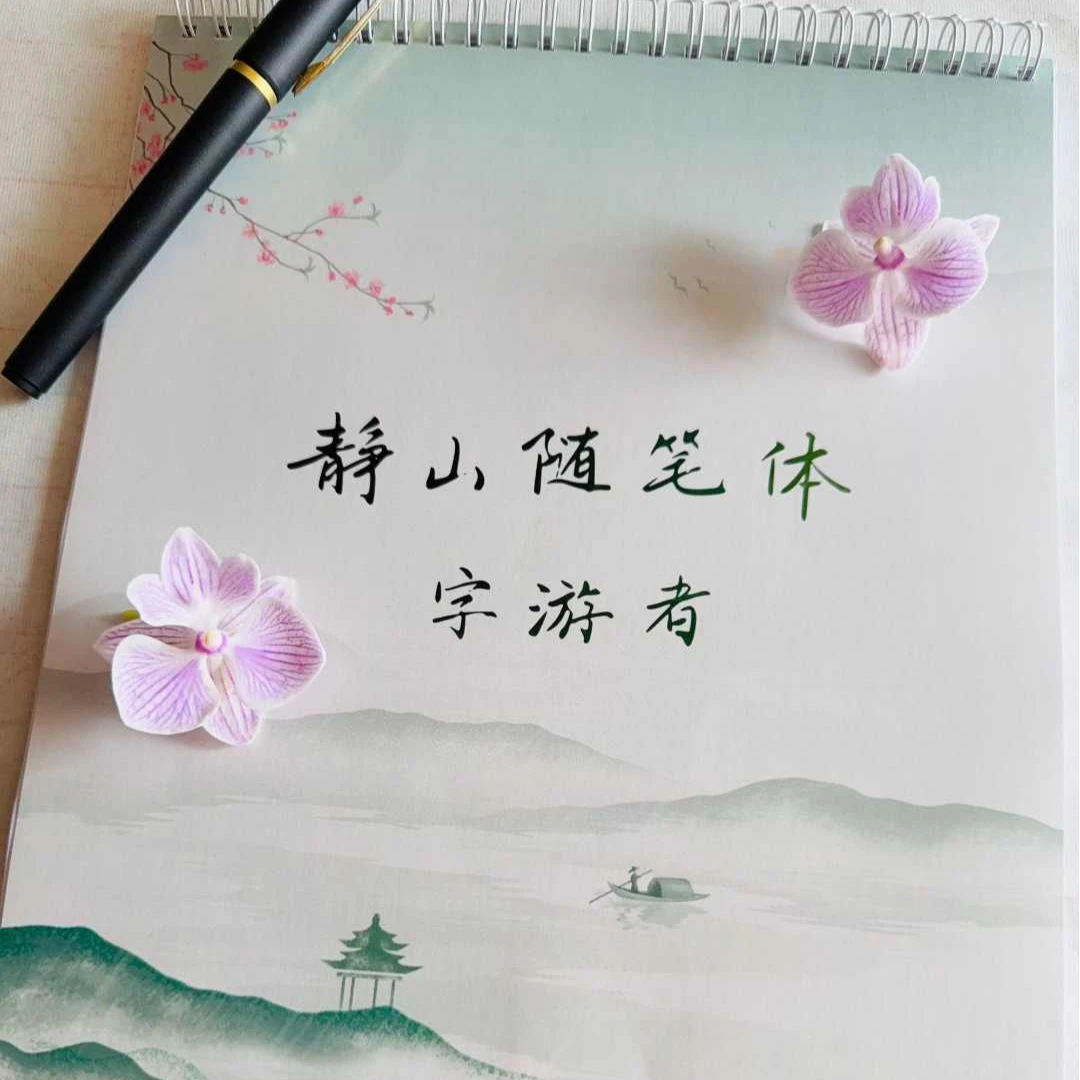 静山随笔体
字游者